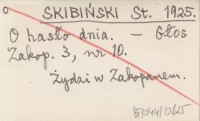 SKIBIŃSKI St. 1925.
O hasło dnia. — Głos
Zakop. 3, nr 10.
Żydzi w Zakopanem.